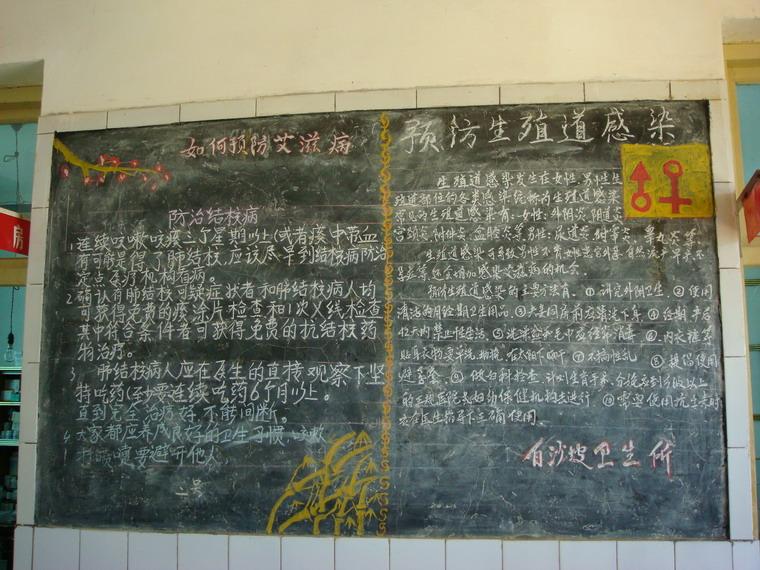 如何预防艾滋病
防治结核病
1.连续咳嗽咳痰三个星期以上(或者痰中带血
有可能是得了肺结核,应该尽早到结核病防治
定点医疗机构看病。
2.确认有肺结核可疑症状者和肺结核病人均
可获得免费的痰涂片检查和1次X线检查
其中符合条件者可获得免费的抗结核药
物治疗。
3. 肺结核病人应在医生的直接观察下坚
持吃药(至少要连续吃药6个月以上。
直到完全治疗好,不能间断。
4.大家都应养成良好的卫生习惯,咳嗽
打喷嚏要避开他人
预防生殖道感染
生殖道感染发生在女性,男性生
殖道部位的各类感染统称为生殖道感染
常见的生殖道感染有:女性:外阴炎,阴道炎
宫颈炎,附件炎,盆腔炎等男性:尿道炎,附睾炎,睾丸炎等
生殖道感染可导致男性不育女性患宫外孕,自然流产早产,不
包含增加感染艾滋病的机会。
预防生殖道感染的主要方法有。①讲究外阴卫生。②使用
清洁的月经期卫生用品。③夫妻同房前应清洗下身。④经期,产后
42天内禁止性生活。⑤洗澡盆和毛巾应经常消毒 ⑥内衣裤等
贴身衣物要单洗,勤换,在太阳下晒干 ⑦不搞性乱 ⑧提倡使用
避孕套。⑨做妇科检查,计划生育手术,分娩要到乡级以上
的正规医院或妇幼保健机构去进行 ⑩需要使用抗生素时
应在医生指导下正确使用。
白沙坡卫生所
房